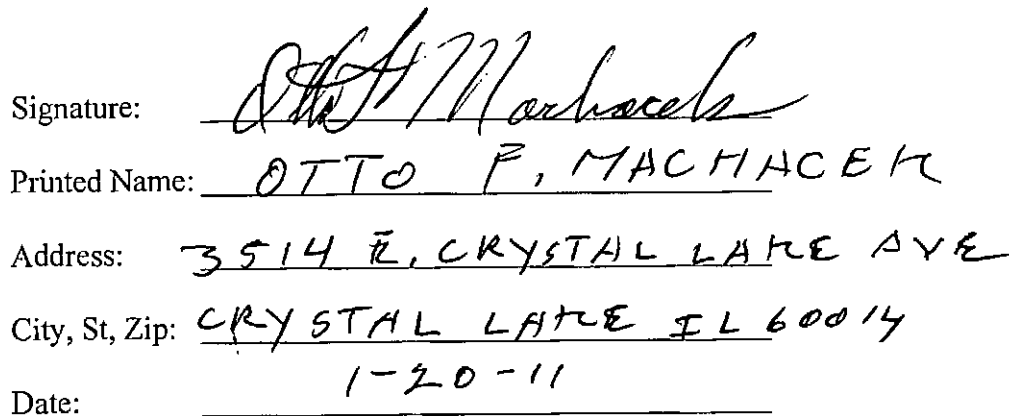 Signature: Otto F Machacek
Printed Name: OTTO F, MACHACEK
Address: 3514 E, CRYSTAL LAKE AVE
City, St, Zip: CRYSTAL LAKE IL 60014
Date: 1-20-11